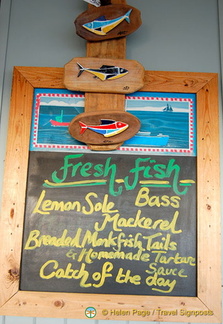 Fresh Fish
Lemon Sole Bass
Mackerel
Breaded Monkfish Tails
& Homemade Tartar
Sauce
Catch of the day
© Helen Page / Travel Signposts